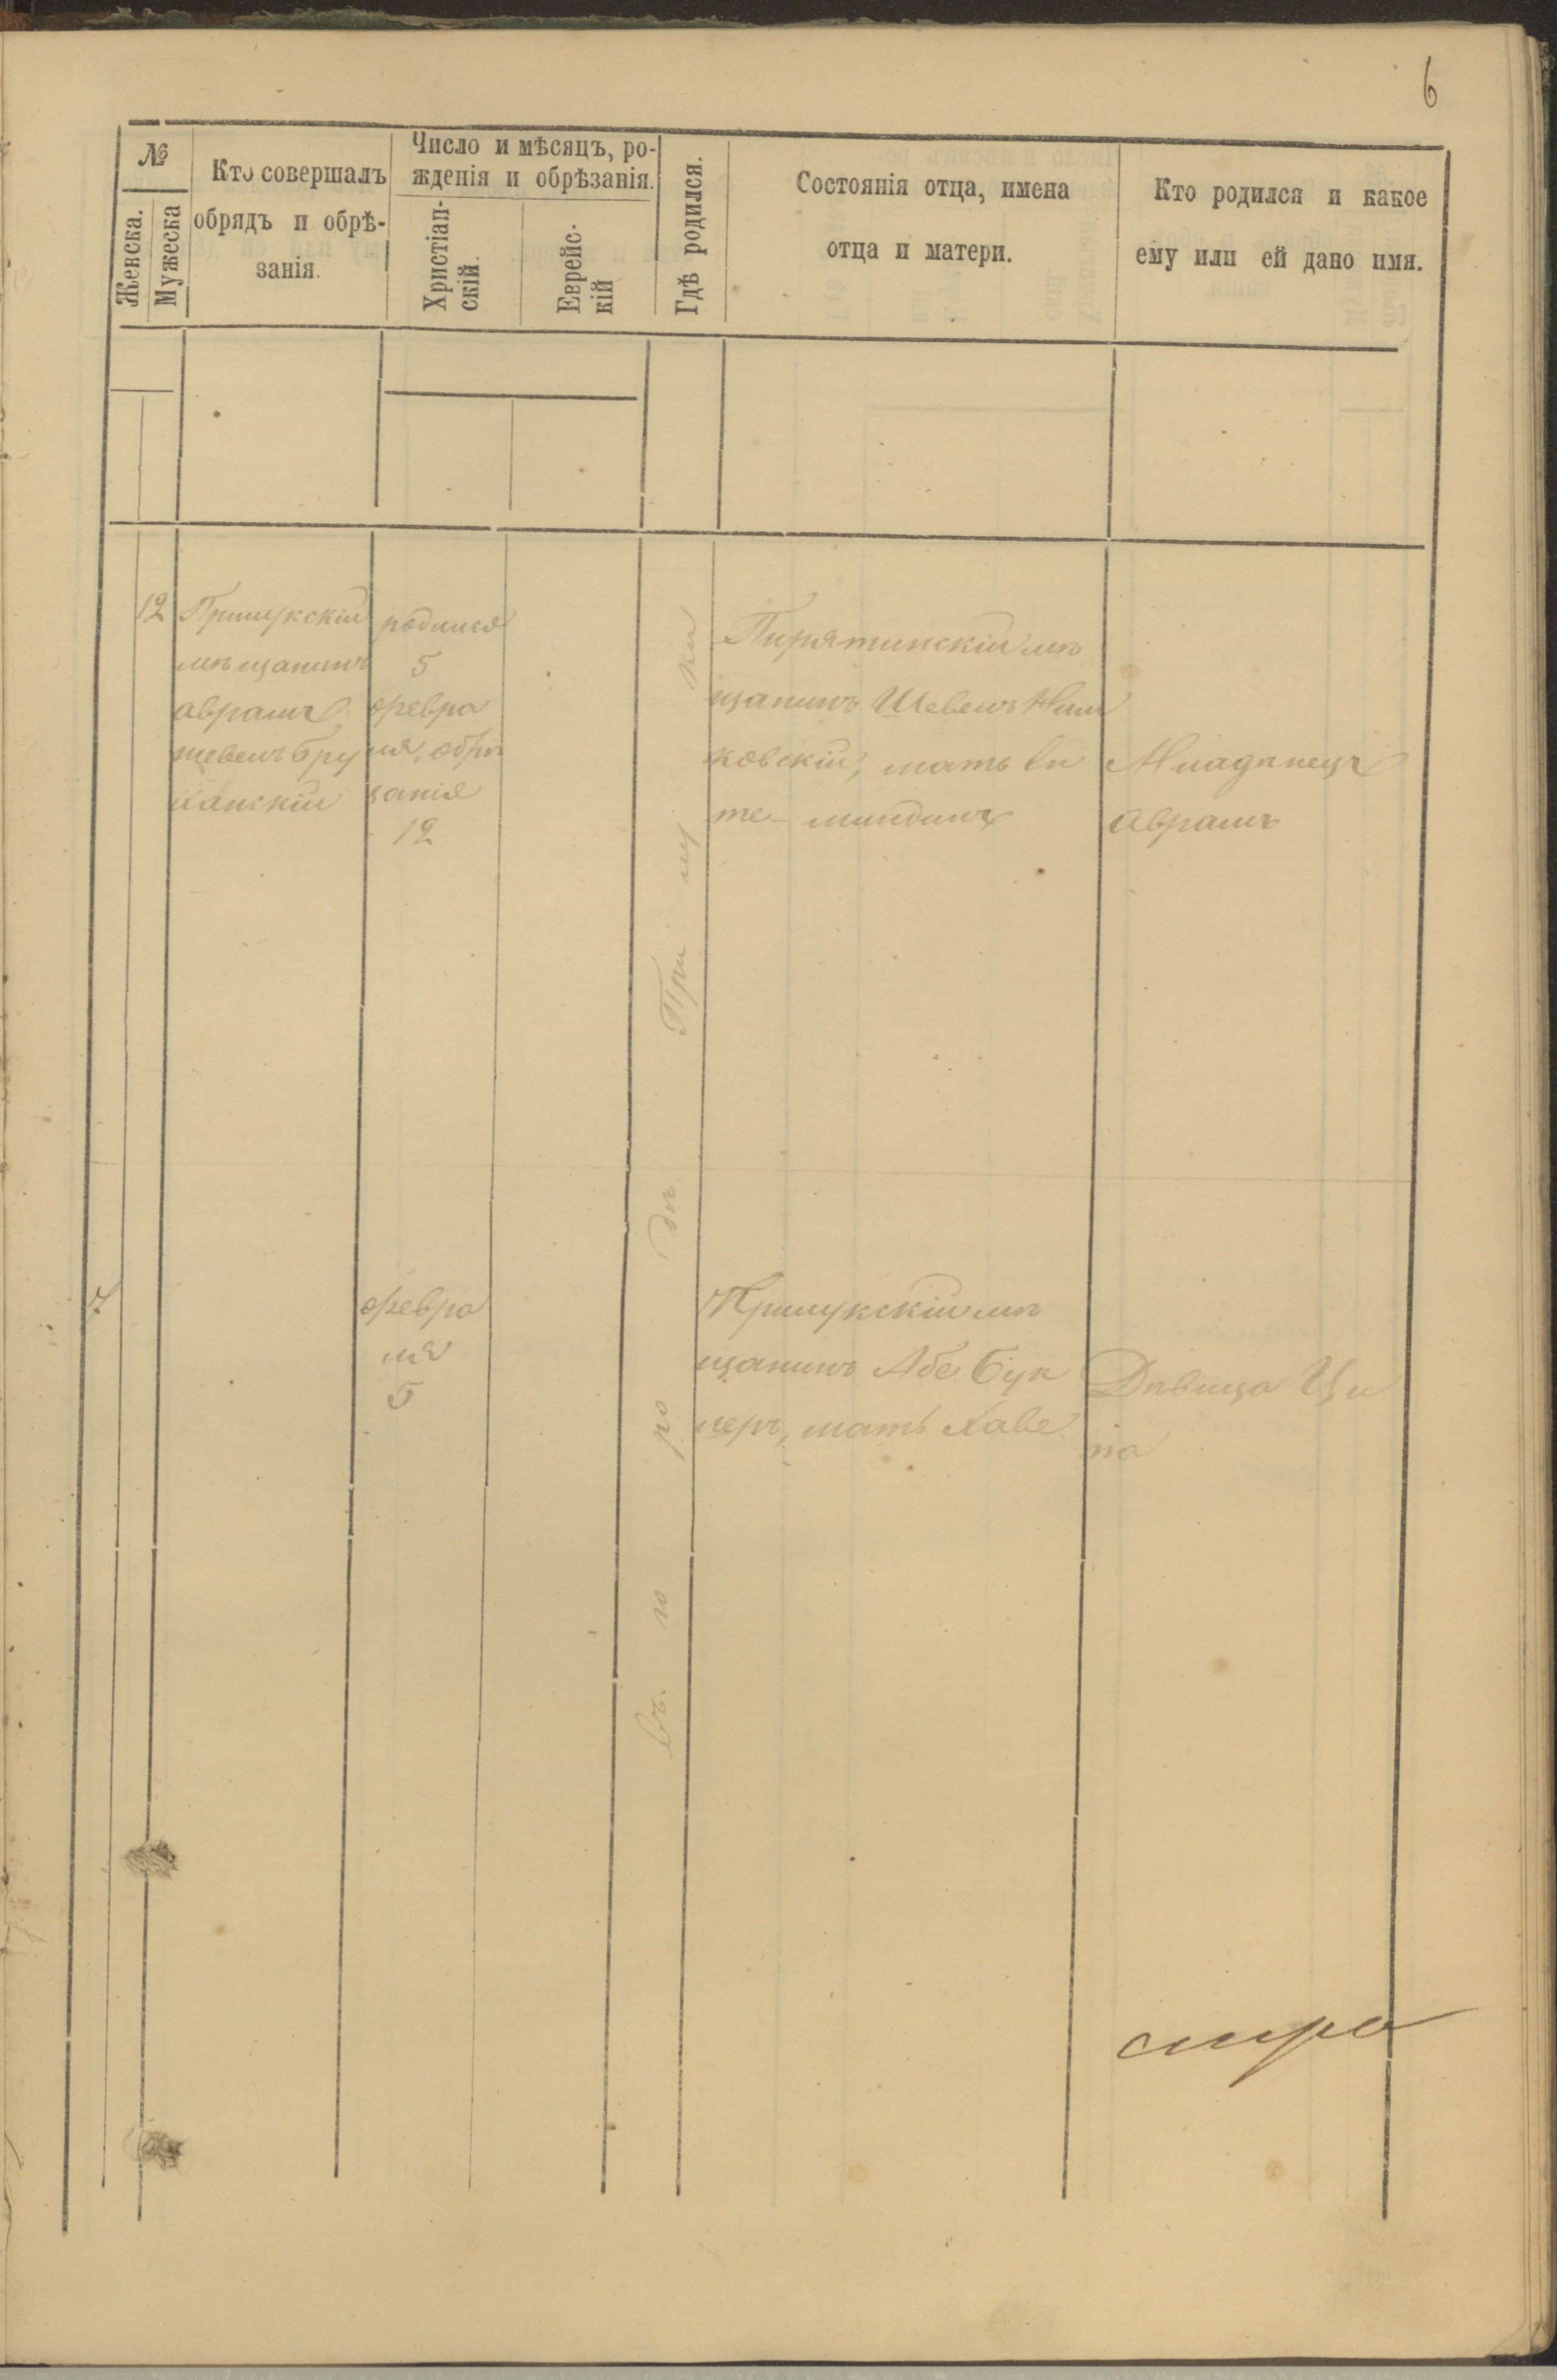 6
№
Женска.
Мужеска
Кто совершалъ
обрядъ и обрѣ-
занія.
Число и мѣсяцъ, ро-
жденія и обрѣзанія.
Христіан-
скій.
Еврейс-
кій
Гдѣ родился.
Состоянія отца, имена
отца и матери.
Кто родился и какое
ему или ей дано имя.
12
Прилукскій
мѣщанинъ
аврамъ
шевелъ Бру
шанскій
родился
5
февра
ля, обрѣ
занія
12
въ го ро дѣ При лу ки
Пирятинскій мѣ
щанинъ Шевелъ
ковскій, мать
те-миндель
Младенецъ
аврамъ
7
февра
ля
5
Прилукскій мѣ
щанинъ Абе Бук
леръ, мать Хаве
Дѣвица Ци
па